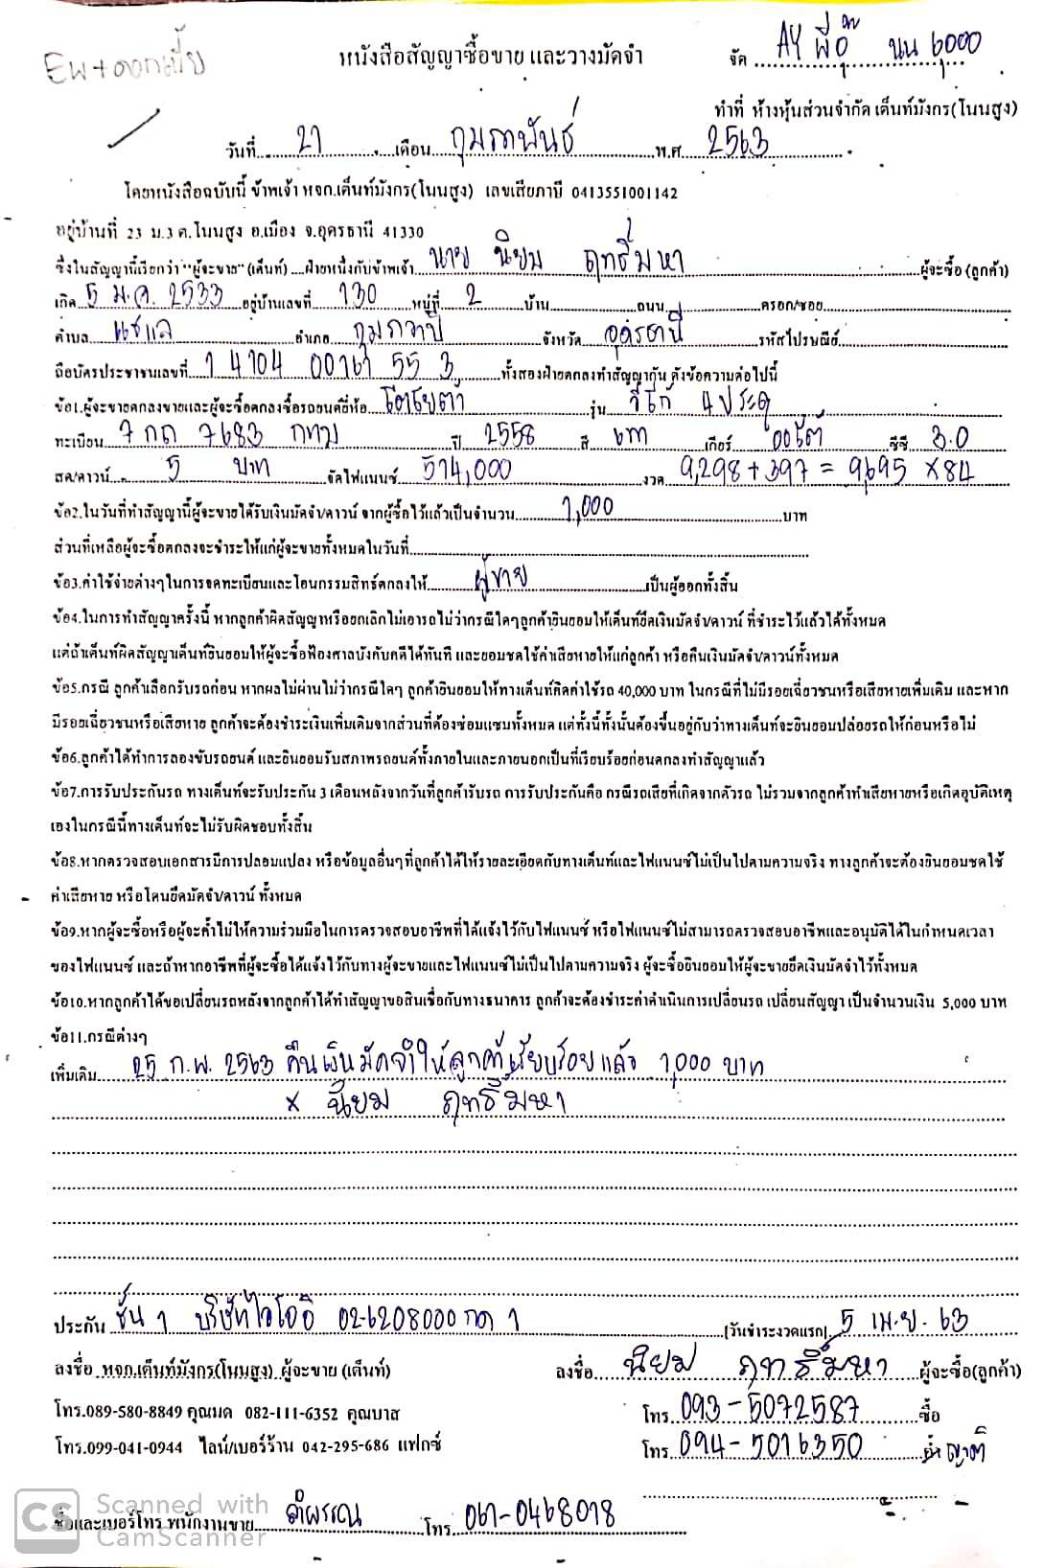 EW+ดอกเบี้ย
หนังสือสัญญาซื้อขาย และวางมัดจำ
จัด AY พี่อุ๊ นน 6000
ทำที่ ห้างหุ้นส่วนจำกัด เต็นท์มังกร(โนนสูง)
วันที่ 21 เดือน กุมภาพันธ์ พ.ศ 2563
โดยหนังสือฉบับนี้ ข้าพเจ้า หจก.เต็นท์มังกร(โนนสูง) เลขเสียภาษี 0413551001142
อยู่บ้านที่ 23 ม.3 ต.โนนสูง อ.เมือง จ.อุดรธานี 41330
ซึ่งในสัญญานี้เรียกว่า "ผู้จะขาย" (เต็นท์) ฝ่ายหนึ่งกับข้าพเจ้า นาย นิยม ฤทธิ์มหา ผู้จะซื้อ (ลูกค้า)
เกิด 5 ม.ค. 2533 อยู่บ้านเลขที่ 130 หมู่ที่ 2 บ้าน ถนน ครอก/ซอย
ตำบล แชแล อำเภอ กุมภวาปี จังหวัด อุดรธานี รหัสไปรษณีย์
ถือบัตรประชาชนเลขที่ 1 4104 00161 55 3 ทั้งสองฝ่ายตกลงทำสัญญากัน ดังข้อความต่อไปนี้
ข้อ1.ผู้จะขายตกลงขายและผู้จะซื้อตกลงซื้อรถยนต์ยี่ห้อ โตโยต้า รุ่น วีโก้ 4 ประตู
ทะเบียน 7 กถ 7683 กทม ปี 2558 สี เทา เกียร์ ออโต้ ซีซี 3.0
สด/ดาวน์ 5 บาท จัดไฟแนนซ์ 514,000 งวด 9,298 + 397 = 9,695 x 84
ข้อ2.ในวันที่ทำสัญญานี้ผู้จะขายได้รับเงินมัดจำ/ดาวน์ จากผู้ซื้อไว้แล้วเป็นจำนวน 1,000 บาท
ส่วนที่เหลือผู้จะซื้อตกลงจะชำระให้แก่ผู้จะขายทั้งหมดในวันที่
ข้อ3.ค่าใช้จ่ายต่างๆในการจดทะเบียนและโอนกรรมสิทธ์ตกลงให้ ผู้ขาย เป็นผู้ออกทั้งสิ้น
ข้อ4.ในการทำสัญญาครั้งนี้ หากลูกค้าผิดสัญญาหรือยกเลิกไม่เอารถไม่ว่ากรณีใดๆลูกค้ายินยอมให้เต็นท์ยึดเงินมัดจำ/ดาวน์ ที่ชำระไว้แล้วได้ทั้งหมด
แต่ถ้าเต็นท์ผิดสัญญาเต็นท์ยินยอมให้ผู้จะซื้อฟ้องศาลบังคับคดีได้ทันที และยอมชดใช้ค่าเสียหายให้แก่ลูกค้า หรือคืนเงินมัดจำ/ดาวน์ทั้งหมด
ข้อ5.กรณี ลูกค้าเลือกรับรถก่อน หากผลไม่ผ่านไม่ว่ากรณีใดๆ ลูกค้ายินยอมให้ทางเต็นท์คิดค่าใช้รถ 40,000 บาท ในกรณีที่ไม่มีรอยเฉี่ยวชนหรือเสียหายเพิ่มเติม และหาก
มีรอยเฉี่ยวชนหรือเสียหาย ลูกค้าจะต้องชำระเงินเพิ่มเติมจากส่วนที่ต้องซ่อมแซมทั้งหมด แต่ทั้งนี้ทั้งนั้นต้องขึ้นอยู่กับว่าทางเต็นท์จะยินยอมปล่อยรถให้ก่อนหรือไม่
ข้อ6.ลูกค้าได้ทำการลองขับรถยนต์ และยินยอมรับสภาพรถยนต์ทั้งภายในและภายนอกเป็นที่เรียบร้อยก่อนตกลงทำสัญญาแล้ว
ข้อ7.การรับประกันรถ ทางเต็นท์จะรับประกัน 3 เดือนหลังจากวันที่ลูกค้ารับรถ การรับประกันคือ กรณีรถเสียที่เกิดจากตัวรถ ไม่รวมจากลูกค้าทำเสียหายหรือเกิดอุบัติเหตุ
เองในกรณีนี้ทางเต็นท์จะไม่รับผิดชอบทั้งสิ้น
ข้อ8.หากตรวจสอบเอกสารมีการปลอมแปลง หรือข้อมูลอื่นๆที่ลูกค้าได้ให้รายละเอียดกับทางเต็นท์และไฟแนนซ์ไม่เป็นไปตามความจริง ทางลูกค้าจะต้องยินยอมชดใช้
ค่าเสียหาย หรือโดนยึดมัดจำ/ดาวน์ ทั้งหมด
ข้อ9.หากผู้จะซื้อหรือผู้จะค้ำไม่ให้ความร่วมมือในการตรวจสอบอาชีพที่ได้แจ้งไว้กับไฟแนนซ์ หรือไฟแนนซ์ไม่สามารถตรวจสอบอาชีพและอนุมัติได้ในกำหนดเวลา
ของไฟแนนซ์ และถ้าหากอาชีพที่ผู้จะซื้อได้แจ้งไว้กับทางผู้จะขายและไฟแนนซ์ไม่เป็นไปตามความจริง ผู้จะซื้อยินยอมให้ผู้จะขายยึดเงินมัดจำไว้ทั้งหมด
ข้อ10.หากลูกค้าได้ขอเปลี่ยนรถหลังจากลูกค้าได้ทำสัญญาขอสินเชื่อกับทางธนาคาร ลูกค้าจะต้องชำระค่าดำเนินการเปลี่ยนรถ เปลี่ยนสัญญา เป็นจำนวนเงิน 5,000 บาท
ข้อ11.กรณีต่างๆ
เพิ่มเติม 25 ก.พ. 2563 คืนเงินมัดจำให้ลูกค้าเรียบร้อยแล้ว 1,000 บาท
x นิยม ฤทธิ์มหา
ประกัน ชั้น 1 บริษัทไอโออิ 02-6208000 กด 1 [วันชำระงวดแรก] 5 เม.ย. 63
ลงชื่อ หจก.เต็นท์มังกร(โนนสูง) ผู้จะขาย (เต็นท์) ลงชื่อ นิยม ฤทธิ์มหา ผู้จะซื้อ(ลูกค้า)
โทร.089-580-8849 คุณมด 082-111-6352 คุณบาส โทร 093-5072587 ซื้อ
โทร.099-041-0944 ไลน์/เบอร์ร้าน 042-295-686 แฟกซ์ โทร 094-5016350 ญาติ
ชื่อและเบอร์โทร พนักงานขาย ลำพรรณ โทร 061-0468018
CS Scanned with
CamScanner